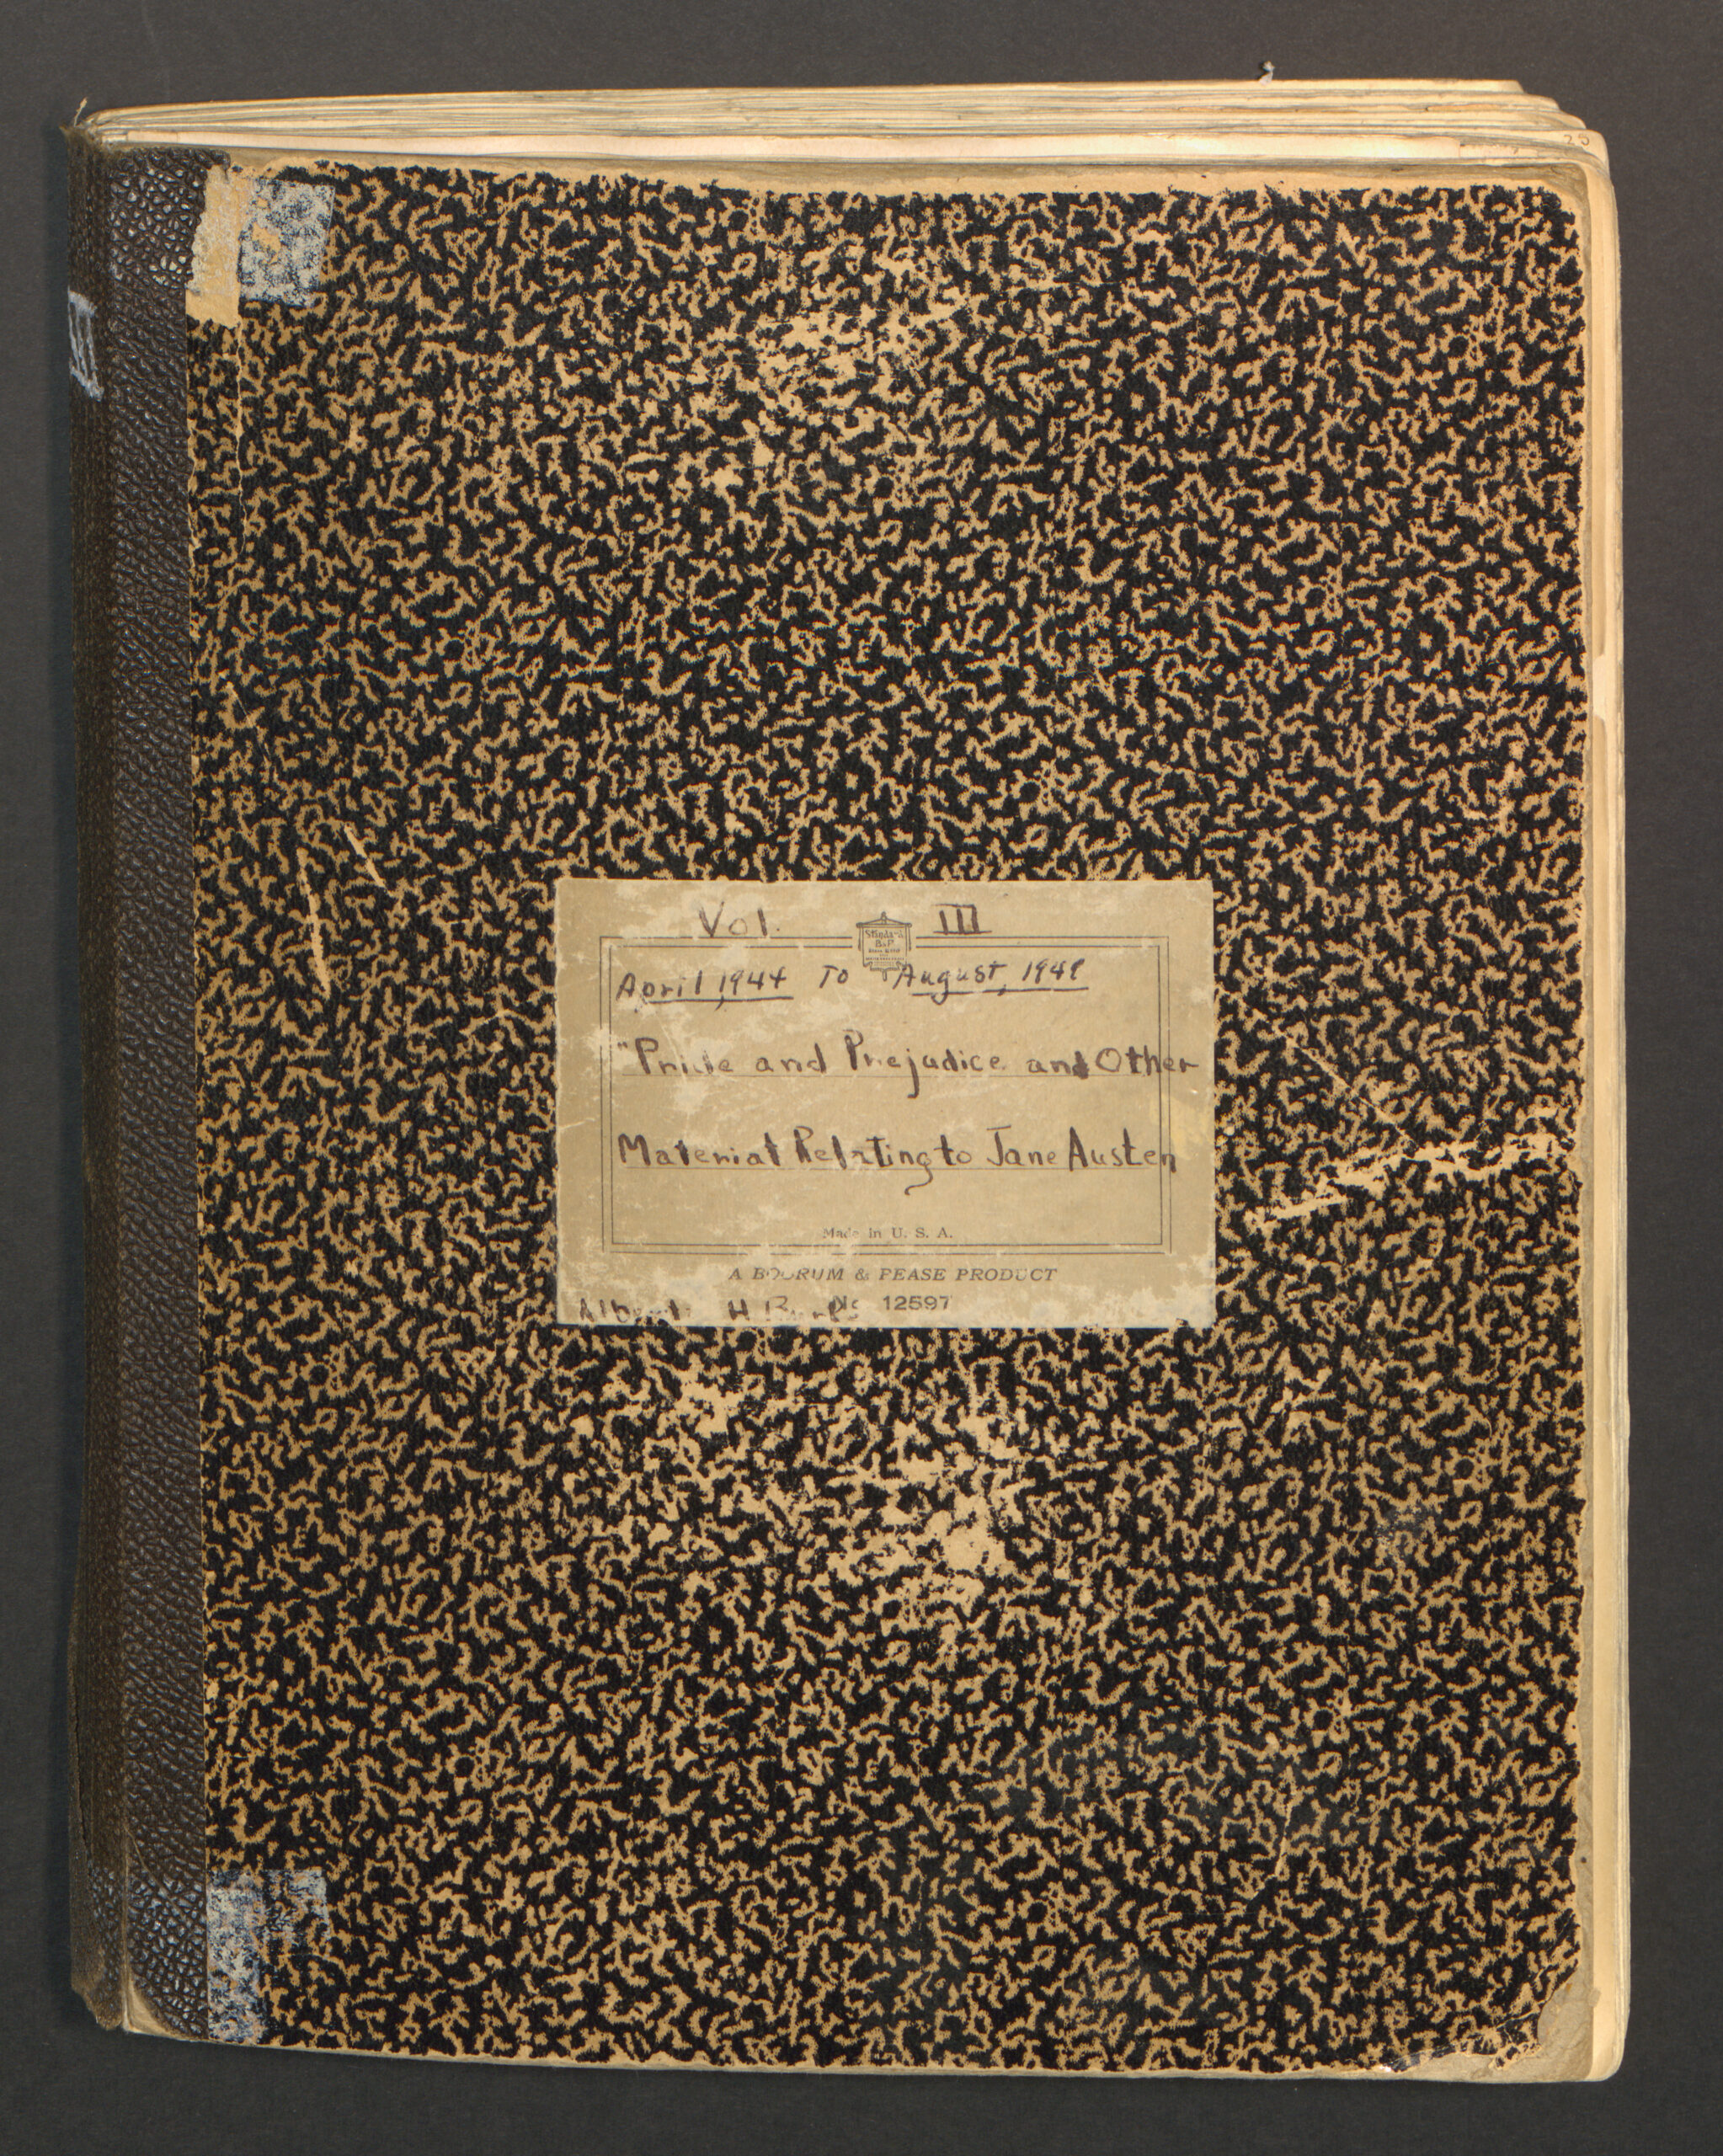 III
Vol. III
Standard
B&P
April, 1944 To August, 1949
"Pride and Prejudice and Other
Material Relating to Jane Austen
Made in U. S. A.
A BOORUM & PEASE PRODUCT
No 12597
H